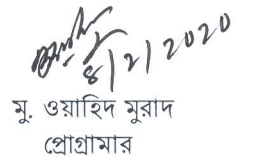 ৪/2/2020
মু. ওয়াহিদ মুরাদ
প্রোগ্রামার